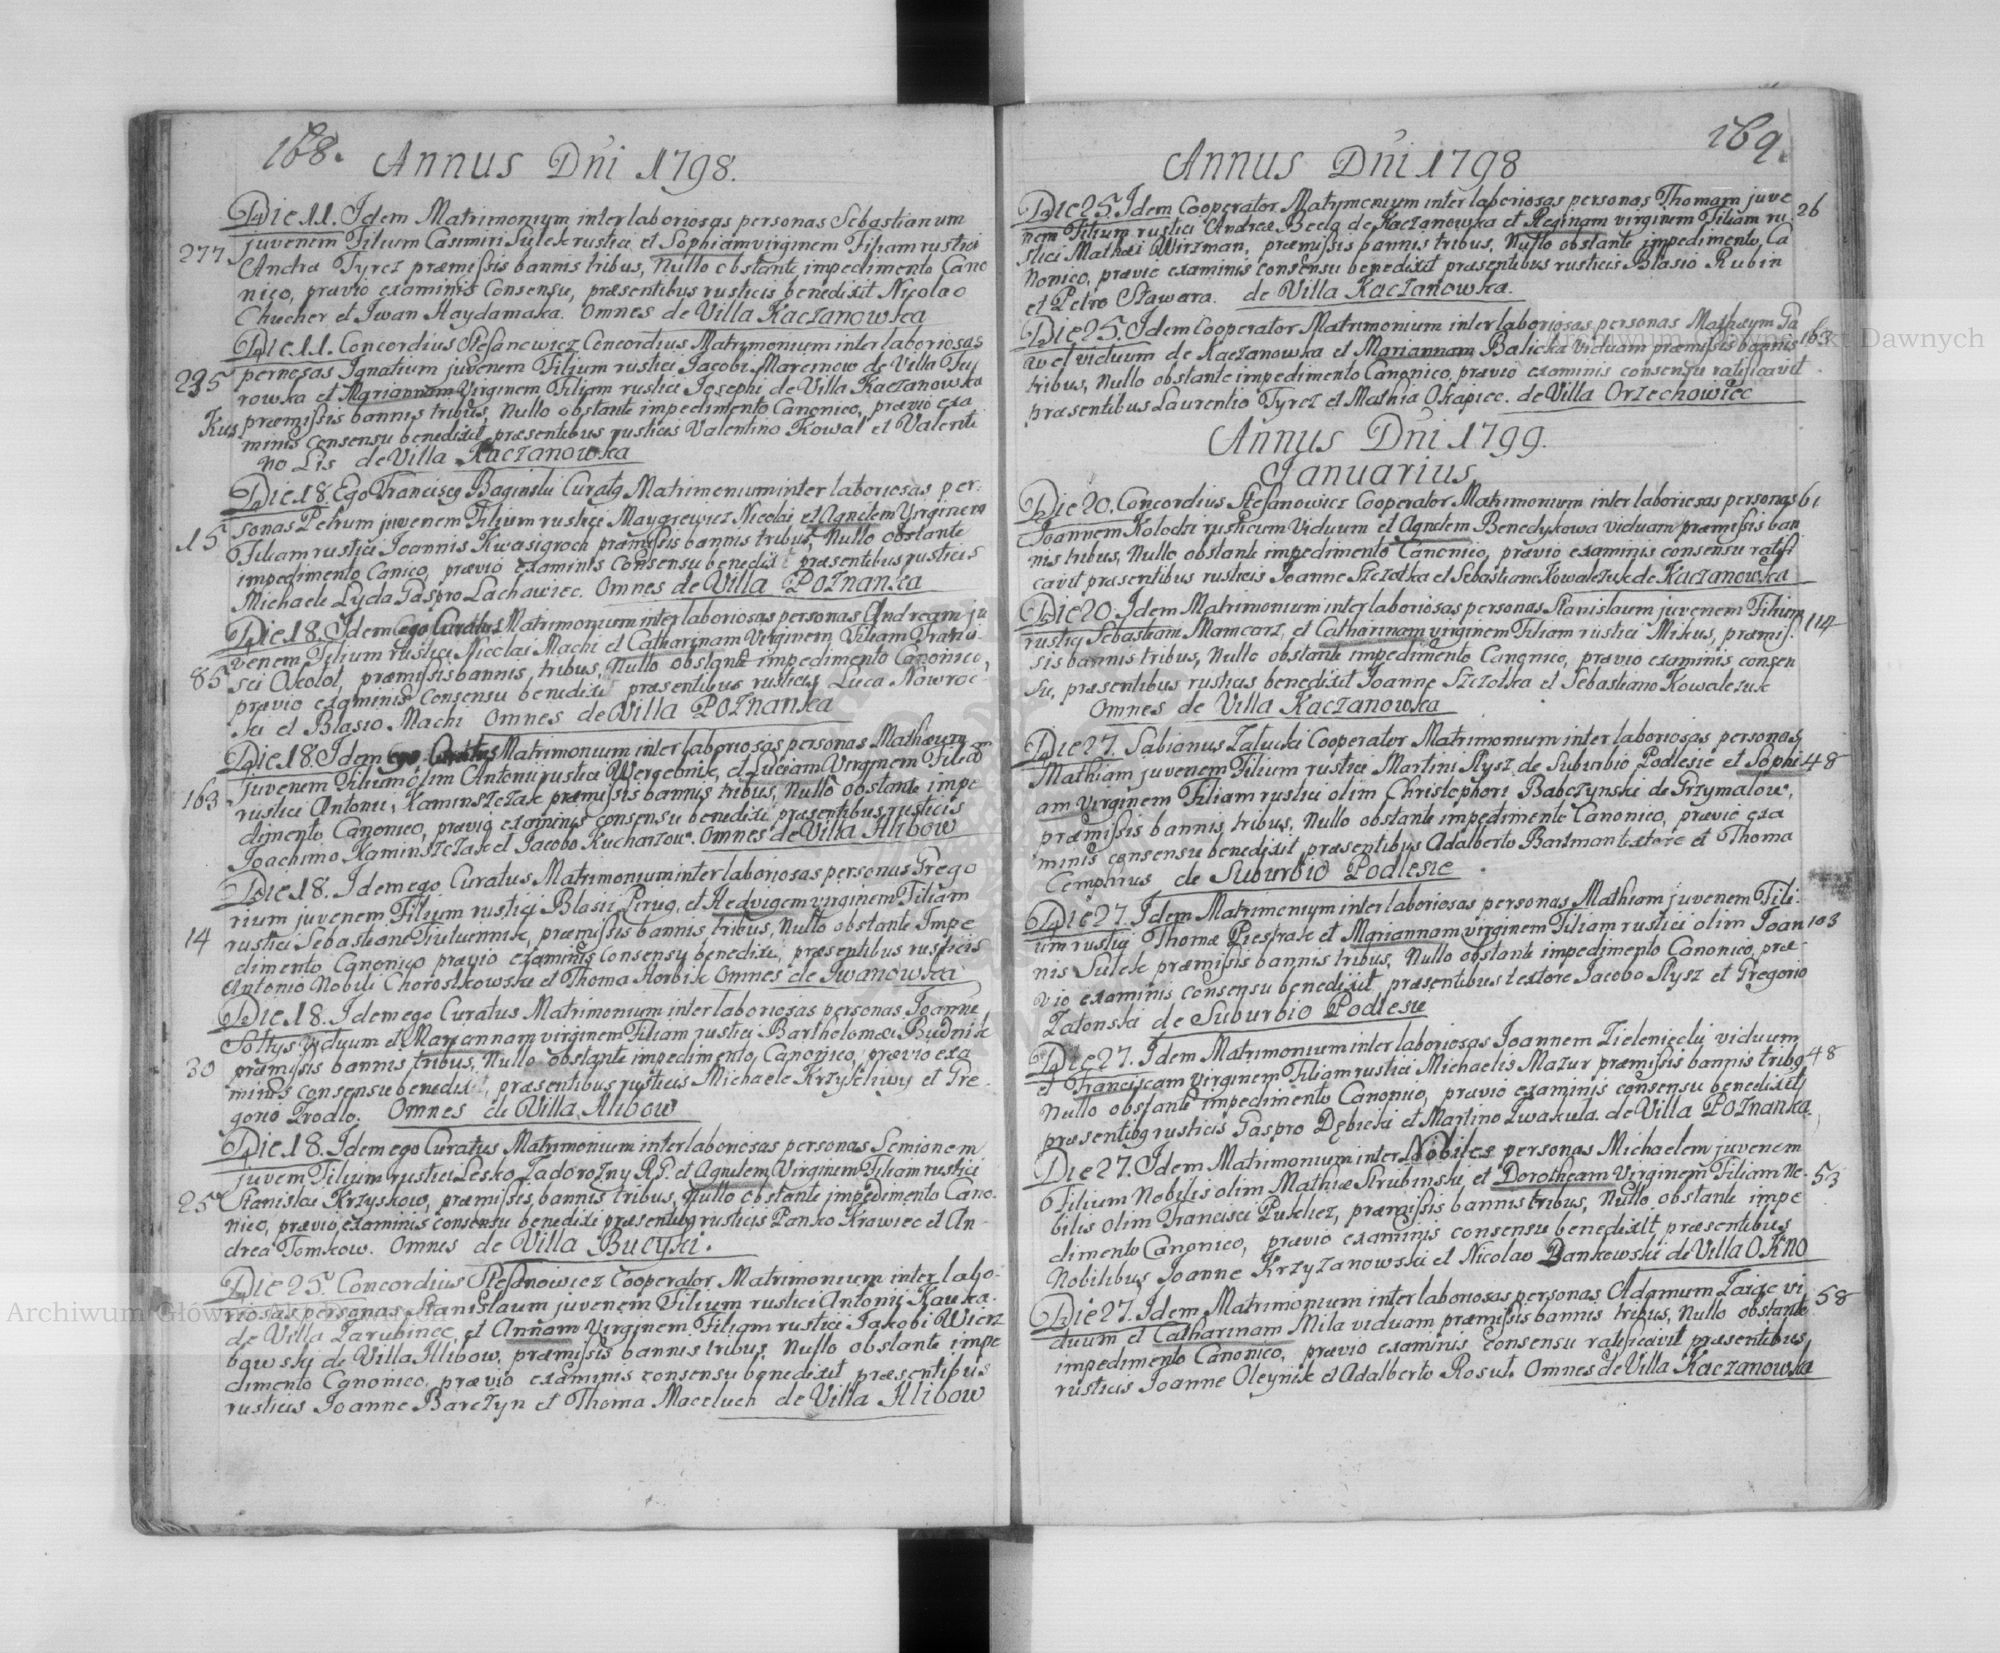 168.
Annus Dni 1798.
Die 11. Idem Matrimonium inter laboriosas personas Sebastianum
277 juvenem Filium Casimiri Sulek rustici, et Sophiam virginem Filiam rustici
Andrea Tyrcz præmissis bannis tribus, Nullo obstante impedimento Cano
nico, prævio examinis Consensu, præsentibus rusticis benedixit Nicolao
Chucher et Iwan Haydamaka. Omnes de Villa Kaczanowka
Die 11. Concordius Stefanowicz Matrimonium inter laboriosas
295 personas Ignatium juvenem Filium rustici Jacobi Marcinow de Villa Tu
rowka et Mariannam Virginem Filiam rustici Josephi de Villa Kaczanowka
Kus præmissis bannis tribus, Nullo obstante impedimento Canonico, prævio exa
minis consensu benedixit præsentibus rusticis Valentino Kowal et Valenti
no Lis de Villa Kaczanowka
Die 18. Ego Francisco Baginski Curato Matrimonium inter laboriosas per-
15 sonas Petrum juvenem Filium rustici Maygiewicz Nicolai et Agnetem Virginem
Filiam rustici Joannis Kwasigroch præmissis bannis tribus, Nullo obstante
impedimento Canico, prævio examinis Consensu benedixi præsentibus rusticis
Michaele Lyda Gaspro Lachawiec. Omnes de Villa Poznanka
Die 18. Idem ego Curatus Matrimonium inter laboriosas personas Andream ju
venem Filium rustici Nicolai Machi et Catharinam Virginem Filiam Franci-
85 sci Okolot, præmissis bannis tribus, Nullo obstante impedimento Canonico,
prævio examinis Consensu benedixi præsentibus rusticis Luca Nawroc-
ki et Blasio Machi Omnes de Villa Poznanka
Die 18. Idem ego Curatus Matrimonium inter laboriosas personas Mathæum
juvenem Filium olim Antonii rustici Wergebnik, et Luciam Virginem Filiam
163 rustici Antonii, Kaminszczak præmissis bannis tribus, Nullo obstante impe
dimento Canonico, prævio examinis consensu benedixi præsentibus rusticis
Joachimo Kaminszczak et Jacobo Kucharzow. Omnes de Villa Illibow
Die 18. Idem ego Curatus Matrimonium inter laboriosas personas Grego
rium juvenem Filium rustici Blasii Pirug, et Hedvigem virginem Filiam
14 rustici Sebastiani præmissis bannis tribus, Nullo obstante Impe
dimento Canonico prævio examinis Consensu benedixi, præsentibus rusticis
Antonio Nobili Chorostkowski et Thoma Horbik Omnes de Iwanowka
Die 18. Idem ego Curatus Matrimonium inter laboriosas personas Joanne
Soltys viduum et Mariannam virginem Filiam rustici Bartholomæi Budnik
30 præmissis bannis tribus, Nullo obstante impedimento Canonico, prævio exa
minis consensu benedixi, præsentibus rusticis Michaele Krzyscliwy et Gre-
gorio Zrodlo. Omnes de Villa Illibow
Die 18. Idem ego Curatus Matrimonium inter laboriosas personas Semionem
juvem Filium rustici Lesko Zadorozny et Agnetem Virginem Filiam rustici
25 Stanislai Krzyskow, præmissis bannis tribus, Nullo obstante impedimento Cano-
nico, prævio examinis consensu benedixi præsentibg rusticis Panko Krawiec et An-
drea Tomkow. Omnes de Villa Bucyki.
Die 25. Concordius Stefanowicz Cooperator Matrimonium inter labo-
riosas personas Stanislaum juvenem Filium rustici Antonij Kauka.
de Villa Zarubince, et Annam Virginem Filiam rustici Jakobi Wierz
bowskij de Villa Illibow, præmissis bannis tribus, Nullo obstante impe
dimento Canonico, prævio examinis consensu benedixit præsentibus
rusticis Joanne Barczyn et Thoma Maceluch de Villa Illibow
169.
Annus Dni 1798
Die 25. Idem Cooperator Matrimonium inter laboriosas personas Thomam juve 26
nem Filium rustici Andreæ Beela de Kaczanowka et Reginam virginem Filiam ru-
stici Mathæi Wirzman, præmissis bannis tribus, Nullo obstante impedimento, Ca
Nonico, prævio examinis consensu benedixit præsentibus rusticis Blasio Rubin
et Petro Stawara. de Villa Kaczanowka.
Die 25. Idem Cooperator Matrimonium inter laboriosas personas Mathæum Ga
wel viduum de Kaczanowka et Mariannam Balicka viduam præmissis bannis 163
tribus, Nullo obstante impedimento Canonico, prævio examinis consensu ratificavit
præsentibus Laurentio Tyrcz et Mathia Okapiec. de Villa Orzechowiec
Annus Dni 1799.
Januarius
Die 20. Concordius Stefanowicz Cooperator Matrimonium inter laboriosas personas 61
Joannem Kolodzi rusticum Viduum et Agnetem Benedykowa viduam præmissis ban
nis tribus, Nullo obstante impedimento Canonico, prævio examinis consensu ratifi
cavit præsentibus rusticis Joanne Szczotka et Sebastiano Kowalczuk de Kaczanowka
Die 20. Idem Matrimonium inter laboriosas personas Stanislaum juvenem Filium
rustici Sebastiani Mamcarz, et Catharinam virginem Filiam rustici Mikus, præmis- 114
sis bannis tribus, Nullo obstante impedimento Canonico, prævio examinis consen
su, præsentibus rusticis benedixit Joanne Szczotka et Sebastiano Kowalczuk
Omnes de Villa Kaczanowka
Die 27. Fabianus Zalucki Cooperator Matrimonium inter laboriosas personas,
Mathiam juvenem Filium rustici Martini Rysz de Suburbio Podlesie et Sophi 48
am Virginem Filiam rustici olim Christophori Babczynski de Grzymalow,
præmissis bannis tribus, Nullo obstante impedimento Canonico, prævio exa
minis consensu benedixit præsentibus Adalberto Barzman textore et Thoma
Cemphrus de Suburbio Podlesie
Die 27. Idem Matrimonium inter laboriosas personas Mathiam juvenem Fili-
um rustici Thomæ Piestrak et Mariannam virginem Filiam rustici olim Joan 103
nis Sulek præmissis bannis tribus, Nullo obstante impedimento Canonico, præ-
vio examinis consensu benedixit, præsentibus textore Jacobo Rysz et Gregorio
Zatonski de Suburbio Podlesie
Die 27. Idem Matrimonium inter laboriosas Joannem Zieleniecki viduum
et Franciscam Virginem Filiam rustici Michaelis Mazur præmissis bannis tribg 48
Nullo obstante impedimento Canonico, prævio examinis consensu benedixit,
præsentibg rusticis Gaspro Dębicki et Martino Iwakula. de Villa Poznanka
Die 27. Idem Matrimonium inter Nobiles personas Michaelem juvenem
Filium Nobilis olim Mathiæ Strubinski, et Dorotheam Virginem Filiam No- 53
bilis olim Francisci Puskiez, præmissis bannis tribus, Nullo obstante impe
dimento Canonico, prævio examinis consensu benedixit, præsentibus
Nobilibus Joanne Krzyzanowski et Nicolao Bankowski de Villa Okno
Die 27. Idem Matrimonium inter laboriosas personas Adamum Zaiąc vi 58
duum et Catharinam Mila viduam præmissis bannis tribus, Nullo obstante
impedimento Canonico, prævio examinis consensu ratificavit præsentibus
rusticis Joanne Oleynik et Adalberto Rosul. Omnes de Villa Kaczanowka